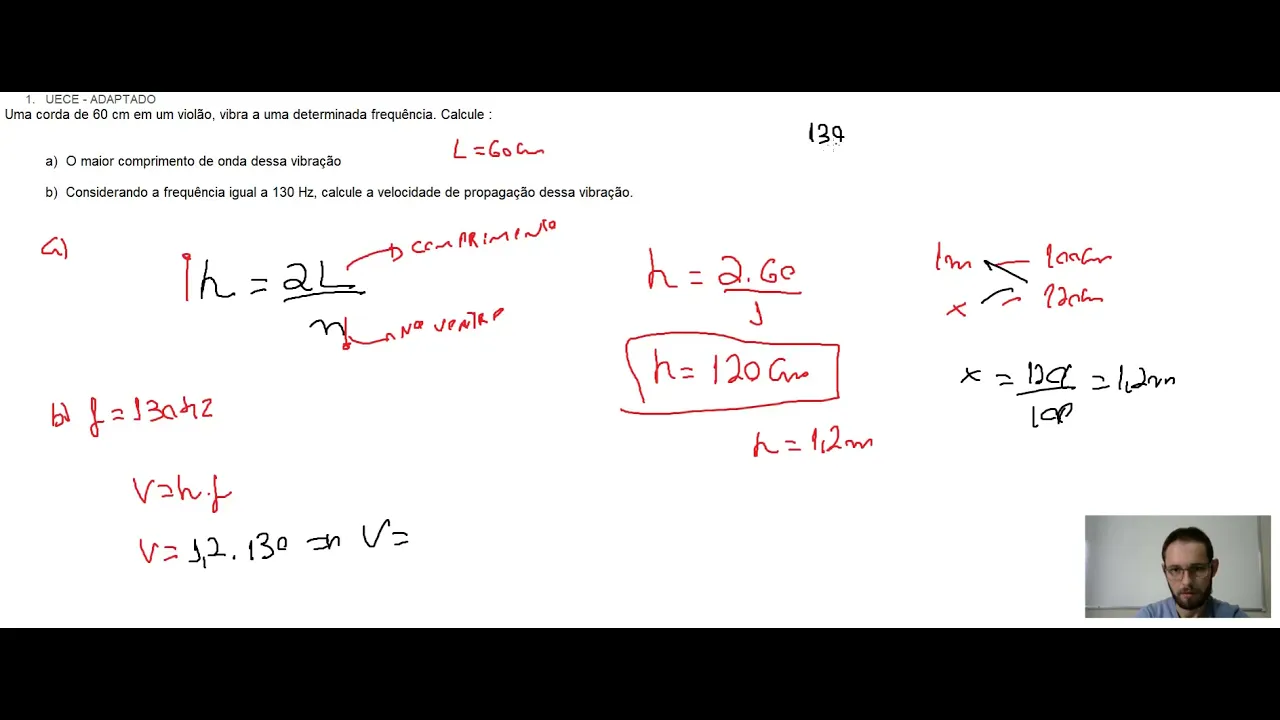 1. UECE - ADAPTADO
Uma corda de 60 cm em um violão, vibra a uma determinada frequência. Calcule :
130
L = 60 cm
a) O maior comprimento de onda dessa vibração
b) Considerando a frequência igual a 130 Hz, calcule a velocidade de propagação dessa vibração.
a)
λ = 2L / n
COMPRIMENTO
Nº VENTRE
λ = 2.60 / 1
λ = 120 cm
λ = 1,2 m
1m 100cm
x 120cm
x = 120 / 100 = 1,2 m
b) f = 130 Hz
V = λ.f
V = 1,2 . 130 ⇒ V =